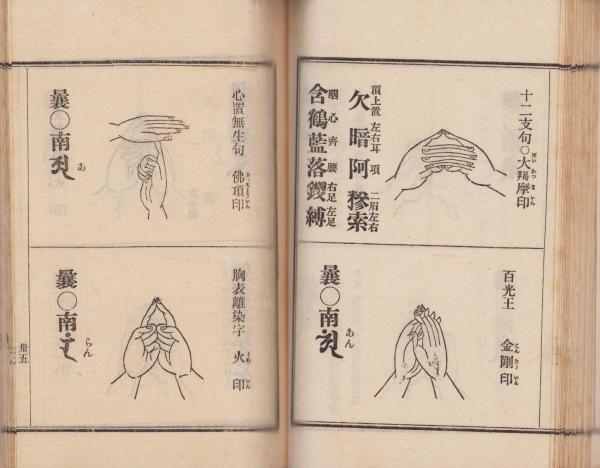 十二支句〇大羯摩印
頂上置 左右耳 項 二眉左右
欠 暗 阿 糝索
咽 心 齊 腰 右足 左足
含鶴藍落鑁縛
百光王 金剛印
曩〇南
あん
心置無生句 佛頂印
曩〇南
あ
胸表離染字 火印
曩〇南
らん
卅五